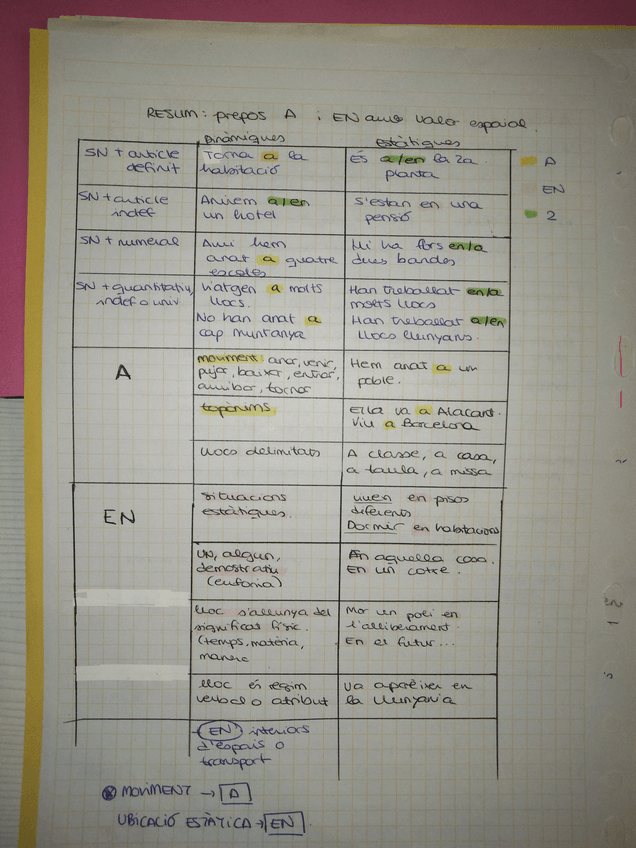 RESUM: prepos A i EN amb valor espaial.
Dinàmiques estàtiques
SN + article definit
Torna a la habitació
És a/en la 2a planta
A
EN
2
SN + article indef
Anirem a/en un hotel
S'estan en una pensió
SN + numeral
Avui hem anat a quatre escoles
Hi ha fors en/a dues bandes
SN + quantitatiu, indef o univ
Viatgen a molts llocs.
No han anat a cap muntanya
Han treballat en/a molts llocs
Han treballat a/en llocs llunyans.
A
moviment: anar, venir, pujar, baixar, entrar, arribar, tornar
Hem anat a un poble.
topònims
Ella va a Alacant.
Viu a Barcelona
llocs delimitats
A classe, a casa, a taula, a missa
EN
situacions estàtiques.
viuen en pisos diferents
Dormir en habitacions
UN, algun, demostratiu (eufonia)
En aquella casa.
En un cotxe.
lloc s'allunya del significat físic. (temps, matèria, manera
Mor un poli en l'alliberament.
En el futur...
lloc és règim verbal o atribut
Va aparèixer en la llunyania
EN interiors d'espais o transport
MOVIMENT → A
UBICACIÓ ESTÀTICA → EN